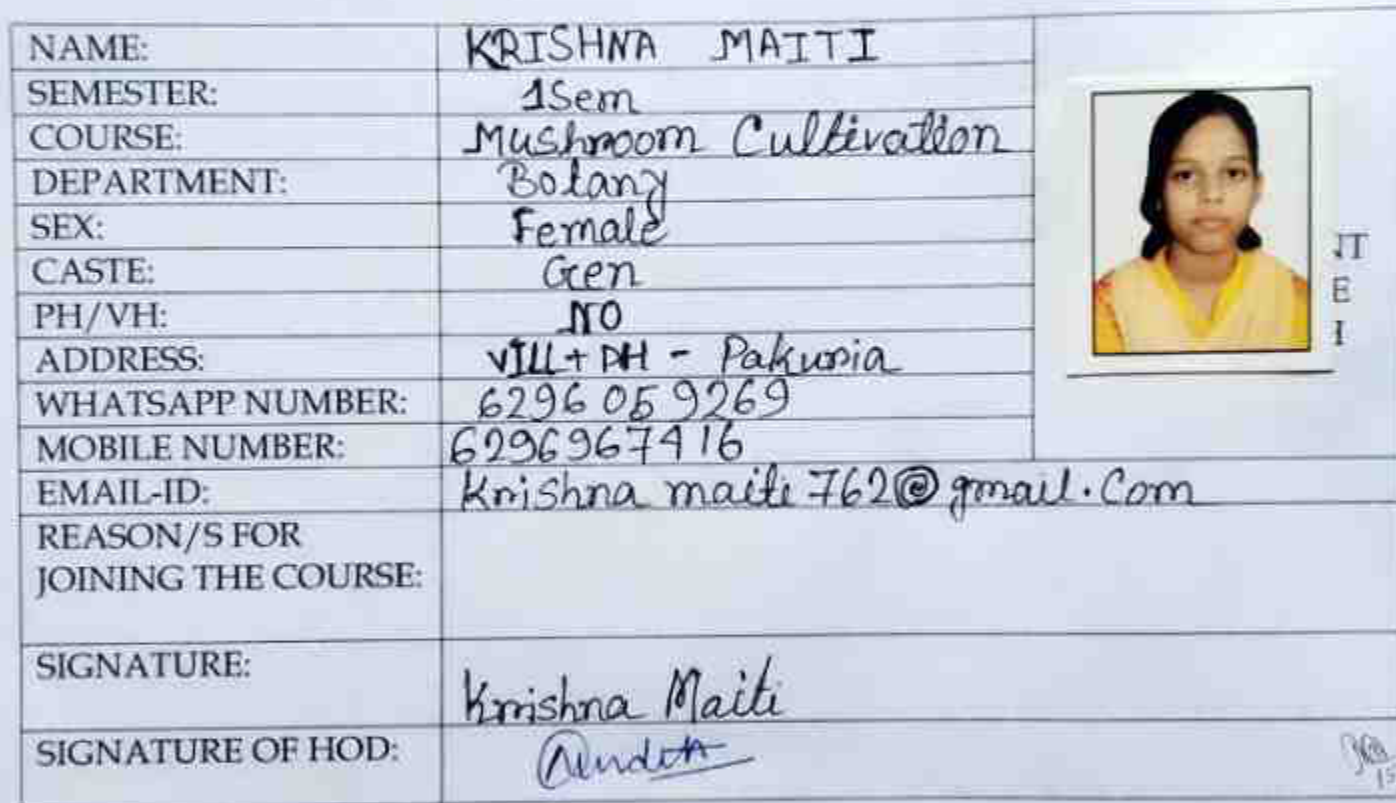 NAME: KRISHNA MAITI
SEMESTER: 1Sem
COURSE: Mushroom Cultivation
DEPARTMENT: Botany
SEX: Female
CASTE: Gen
PH/VH: NO
ADDRESS: VILL + PH - Pakuria
WHATSAPP NUMBER: 6296 05 9269
MOBILE NUMBER: 6296967416
EMAIL-ID: Krishna maiti 762@gmail.Com
REASON/S FOR
JOINING THE COURSE:
SIGNATURE: Krishna Maiti
SIGNATURE OF HOD: